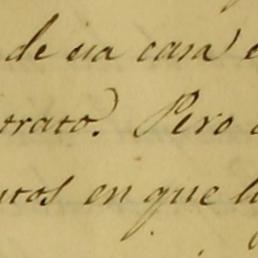 de esa casa
trato. Pero
en que